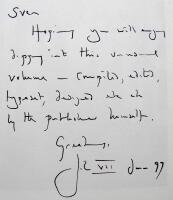 Sven
Hoping you will enjoy
dipping into this unusual
volume — compiled, edited,
typeset, designed etc etc
by the publisher himself.
Greetings,
VII 97